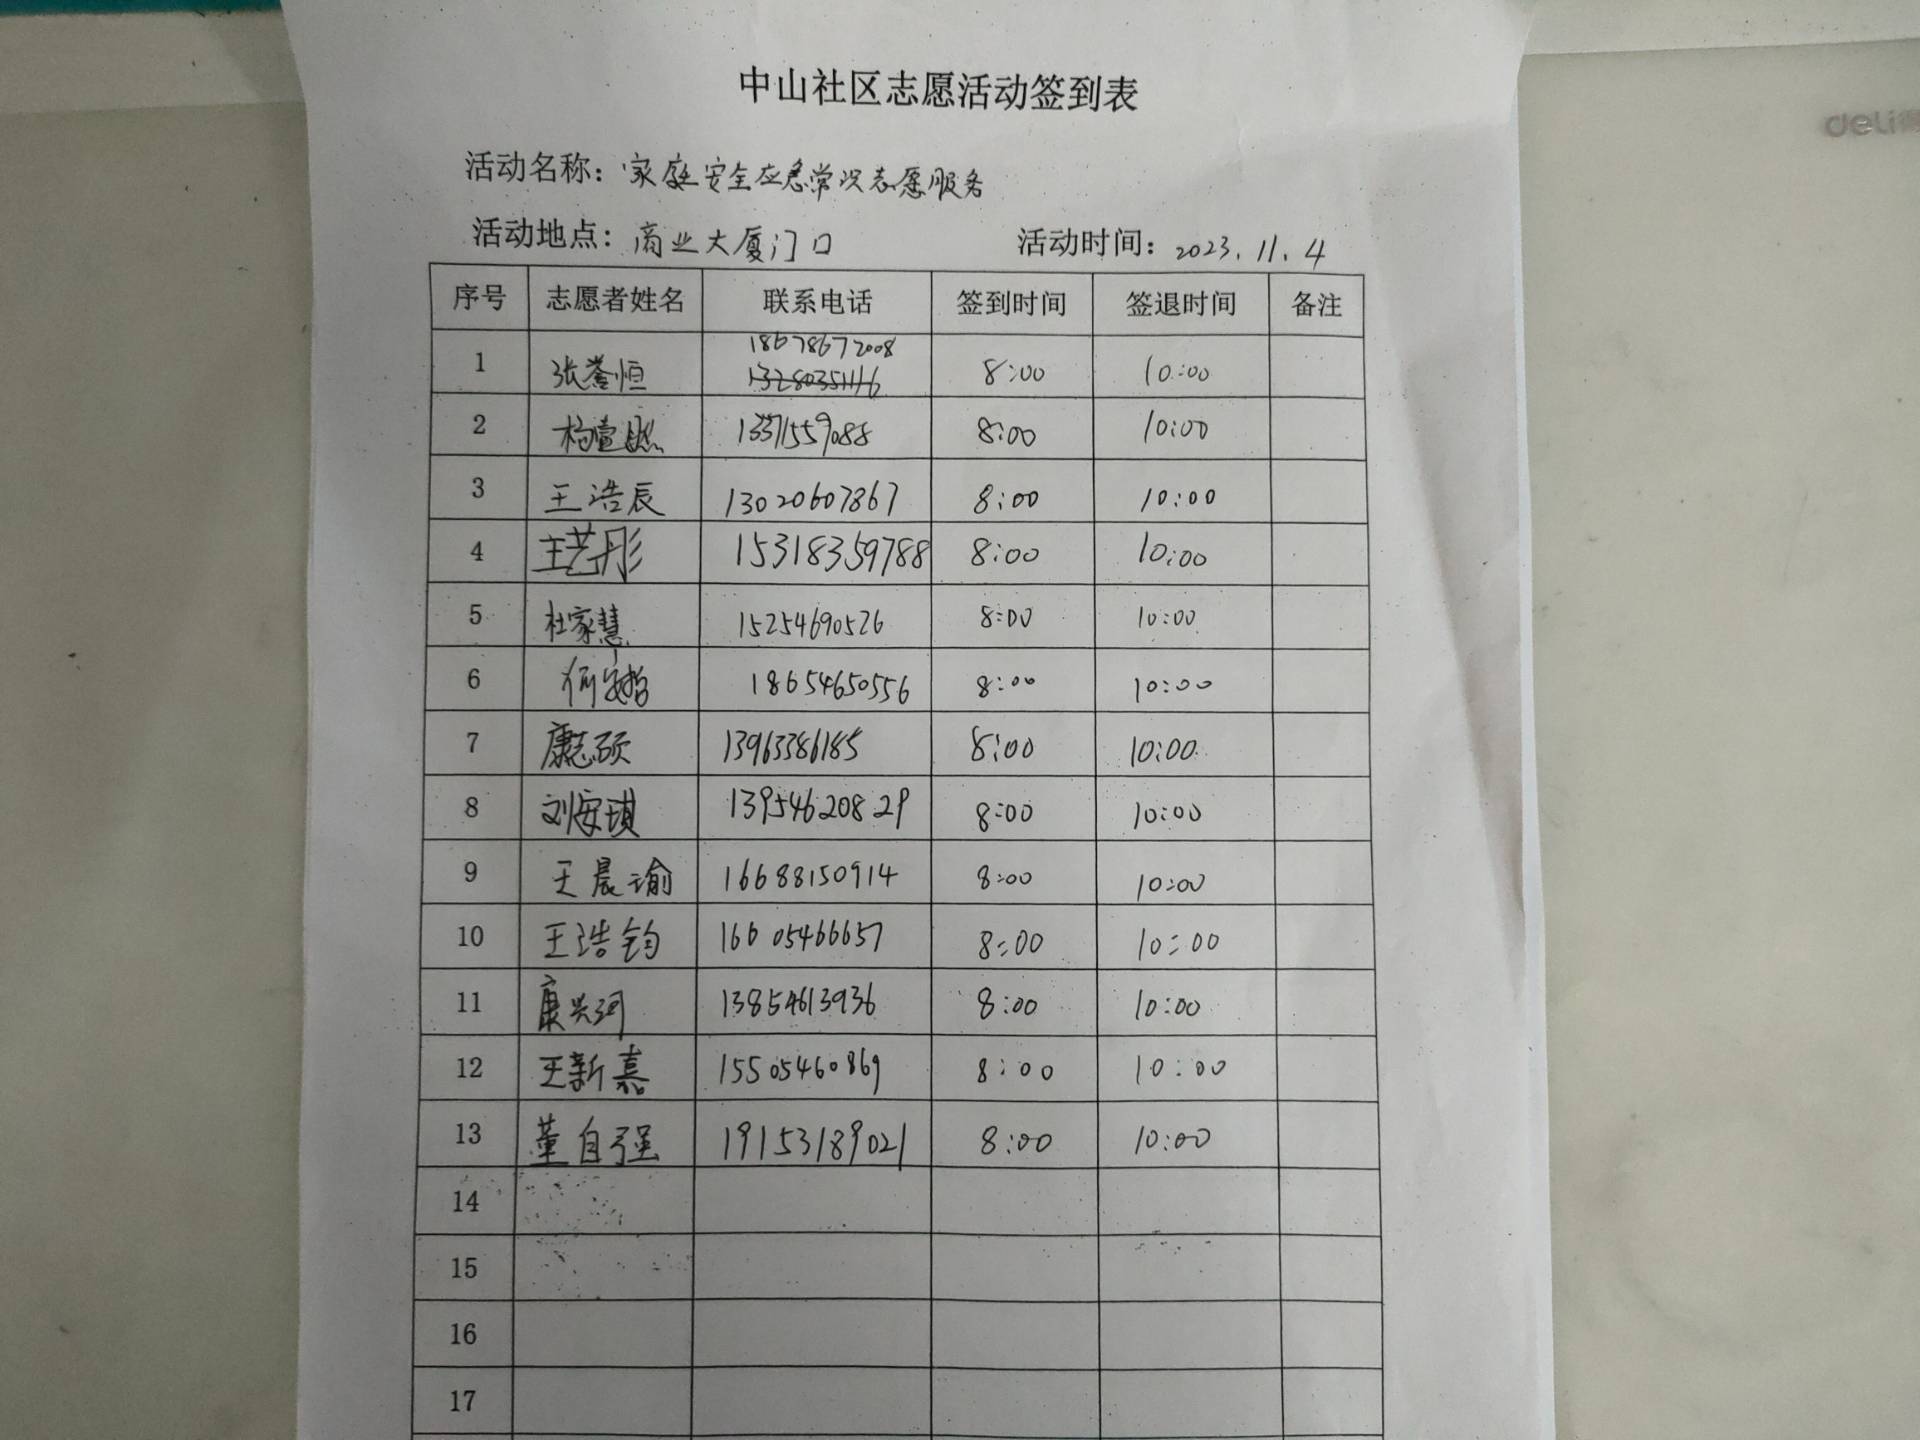 中山社区志愿活动签到表
deli得
活动名称：家庭安全应急常识志愿服务
活动地点：商业大厦门口 活动时间：2023.11.4
序号 志愿者姓名 联系电话 签到时间 签退时间 备注
186786772008
1 张誉恒 13280351116 8:00 10:00
2 杨萱 8:00 10:00
3 王浩辰 13020607867 8:00 10:00
4 王艺彤 15318359788 8:00 10:00
5 杜家慧 15254690526 8:00 10:00
6 何 18654650556 8:00 10:00
7 康志硕 13963386185 8:00 10:00
8 刘安琪 13954620829 8:00 10:00
9 王晨瑜 16688150914 8:00 10:00
10 王浩钧 16605466657 8:00 10:00
11 康兴河 13854613936 8:00 10:00
12 王新嘉 15505460869 8:00 10:00
13 董自强 19153189021 8:00 10:00
14
15
16
17